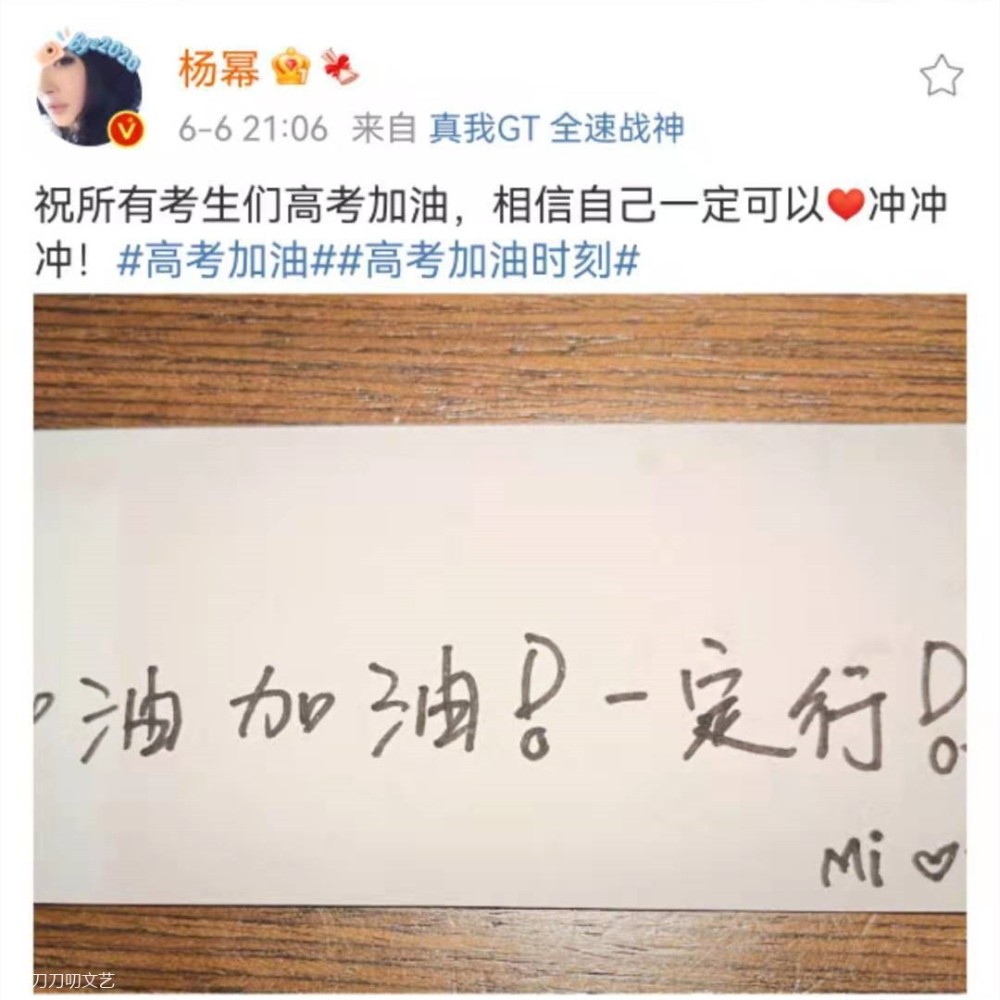 Bye2020
杨幂
6-6 21:06 来自 真我GT 全速战神
祝所有考生们高考加油，相信自己一定可以❤冲冲
冲！#高考加油##高考加油时刻#
油 加油！一定行！
Mi ♡
刀刀叨文艺